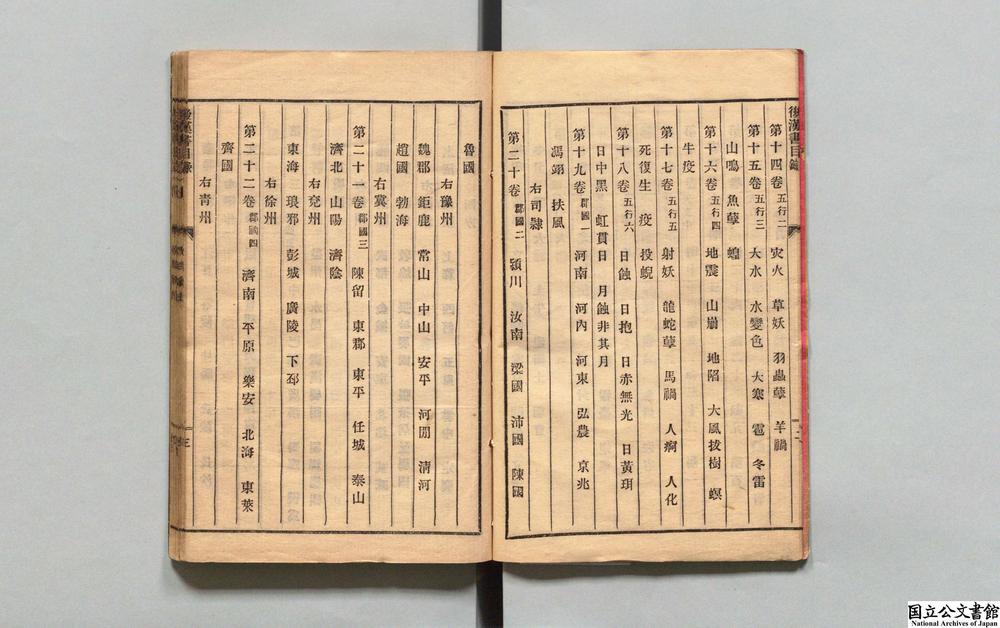 後漢書目錄
第十四卷 五行二 灾火 草妖 羽蟲孽 羊禍
第十五卷 五行三 大水 水變色 大寒 雹 冬雷
山鳴 魚孽 蝗
第十六卷 五行四 地震 山崩 地陷 大風拔樹 螟
牛疫
第十七卷 五行五 射妖 龍蛇孽 馬禍 人痾 人化
死復生 疫 投蜺
第十八卷 五行六 日蝕 日抱 日赤無光 日黃珥
日中黑 虹貫日 月蝕非其月
第十九卷 郡國一 河南 河內 河東 弘農 京兆
馮翊 扶風
右司隸
第二十卷 郡國二 潁川 汝南 梁國 沛國 陳國
魯國
右豫州
魏郡 鉅鹿 常山 中山 安平 河閒 清河
趙國 勃海
右冀州
第二十一卷 郡國三 陳留 東郡 東平 任城 泰山
濟北 山陽 濟陰
右兗州
東海 琅邪 彭城 廣陵 下邳
右徐州
第二十二卷 郡國四 濟南 平原 樂安 北海 東萊
齊國
右青州
国立公文書館
National Archives of Japan